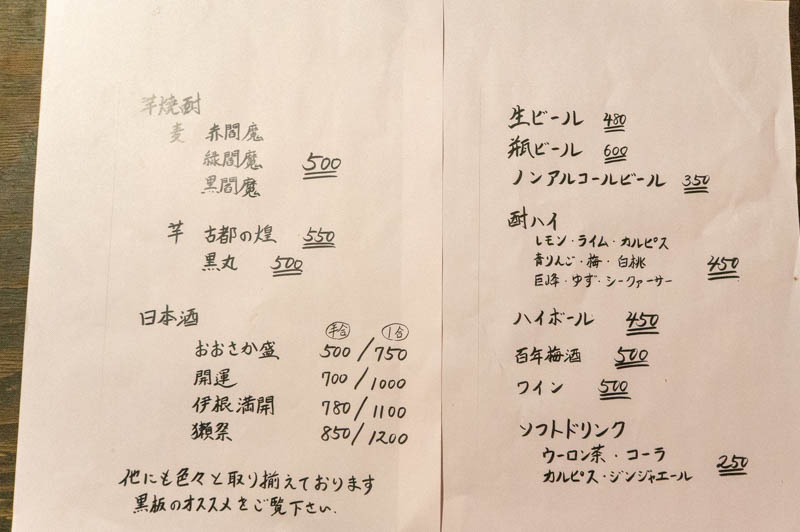 芋焼酎
麦 赤閻魔
緑閻魔 500
黒閻魔
芋 古都の煌 550
黒丸 500
日本酒 半合 1合
おおさか盛 500/750
開運 700/1000
伊根満開 780/1100
獺祭 850/1200
他にも色々と取り揃えております
黒板のオススメをご覧下さい.
生ビール 480
瓶ビール 600
ノンアルコールビール 350
酎ハイ
レモン・ライム・カルピス
青りんご・梅・白桃 450
巨峰・ゆず・シークァーサー
ハイボール 450
百年梅酒 500
ワイン 500
ソフトドリンク
ウーロン茶・コーラ 250
カルピス・ジンジャエール